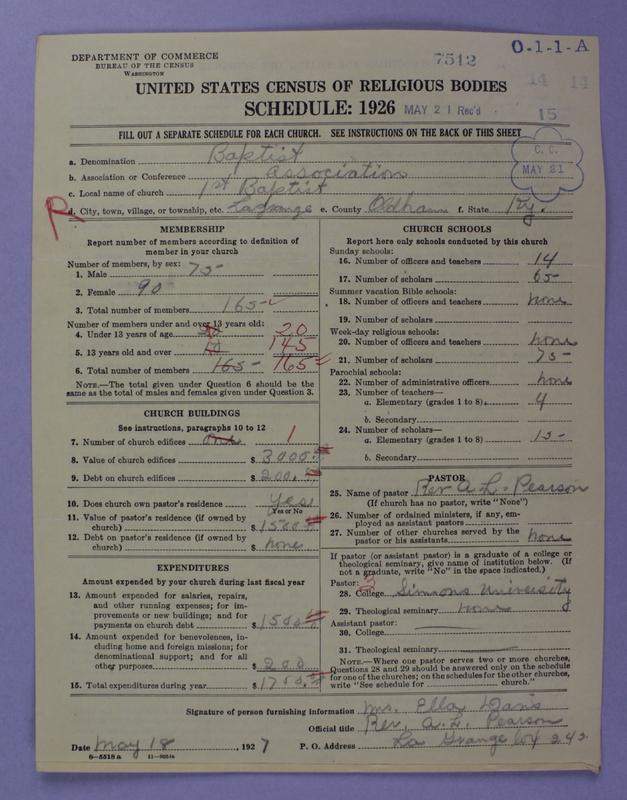 DEPARTMENT OF COMMERCE
BUREAU OF THE CENSUS
WASHINGTON
7512
0-1-1-A
14 14
UNITED STATES CENSUS OF RELIGIOUS BODIES
SCHEDULE: 1926
MAY 21 Rec'd
15
FILL OUT A SEPARATE SCHEDULE FOR EACH CHURCH. SEE INSTRUCTIONS ON THE BACK OF THIS SHEET
C. C.
MAY 21
a. Denomination Baptist
b. Association or Conference association
c. Local name of church 1st Baptist
R
d. City, town, village, or township, etc. Lagrange e. County Oldham f. State Ky.
MEMBERSHIP
Report number of members according to definition of
member in your church
Number of members, by sex:
1. Male 75
2. Female 90
3. Total number of members 165
Number of members under and over 13 years old:
4. Under 13 years of age 20
5. 13 years old and over 145
6. Total number of members 165 165
NOTE.—The total given under Question 6 should be the
same as the total of males and females given under Question 3.
CHURCH BUILDINGS
See instructions, paragraphs 10 to 12
7. Number of church edifices one 1
8. Value of church edifices $ 3000
9. Debt on church edifices $ 200.
10. Does church own pastor's residence yes
(Yes or No)
11. Value of pastor's residence (if owned by
church) $ 1500
12. Debt on pastor's residence (if owned by
church) $ none
EXPENDITURES
Amount expended by your church during last fiscal year
13. Amount expended for salaries, repairs,
and other running expenses; for im-
provements or new buildings; and for
payments on church debt $ 1500
14. Amount expended for benevolences, in-
cluding home and foreign missions; for
denominational support; and for all
other purposes $ 200
15. Total expenditures during year $ 1700.
CHURCH SCHOOLS
Report here only schools conducted by this church
Sunday schools:
16. Number of officers and teachers 14
17. Number of scholars 65
Summer vacation Bible schools:
18. Number of officers and teachers none
19. Number of scholars
Week-day religious schools:
20. Number of officers and teachers none
21. Number of scholars 75
Parochial schools:
22. Number of administrative officers none
23. Number of teachers—
a. Elementary (grades 1 to 8) 4
b. Secondary
24. Number of scholars—
a. Elementary (grades 1 to 8) 15
b. Secondary
PASTOR
25. Name of pastor Rev A. L. Pearson
(If church has no pastor, write "None")
26. Number of ordained ministers, if any, em-
ployed as assistant pastors
27. Number of other churches served by the
pastor or his assistants none
If pastor (or assistant pastor) is a graduate of a college or
theological seminary, give name of institution below. (If
not a graduate, write "No" in the space indicated.)
Pastor:
28. College Simmons University
29. Theological seminary none
Assistant pastor:
30. College
31. Theological seminary
NOTE.—Where one pastor serves two or more churches,
Questions 28 and 29 should be answered only on the schedule
for one of the churches; on the schedules for the other churches,
write "See schedule for church."
Signature of person furnishing information Mrs. Ella Davis
Official title Rev. A. L. Pearson
Date May 18, 1927 P. O. Address La Grange box 242
8-5518a 11-9554a